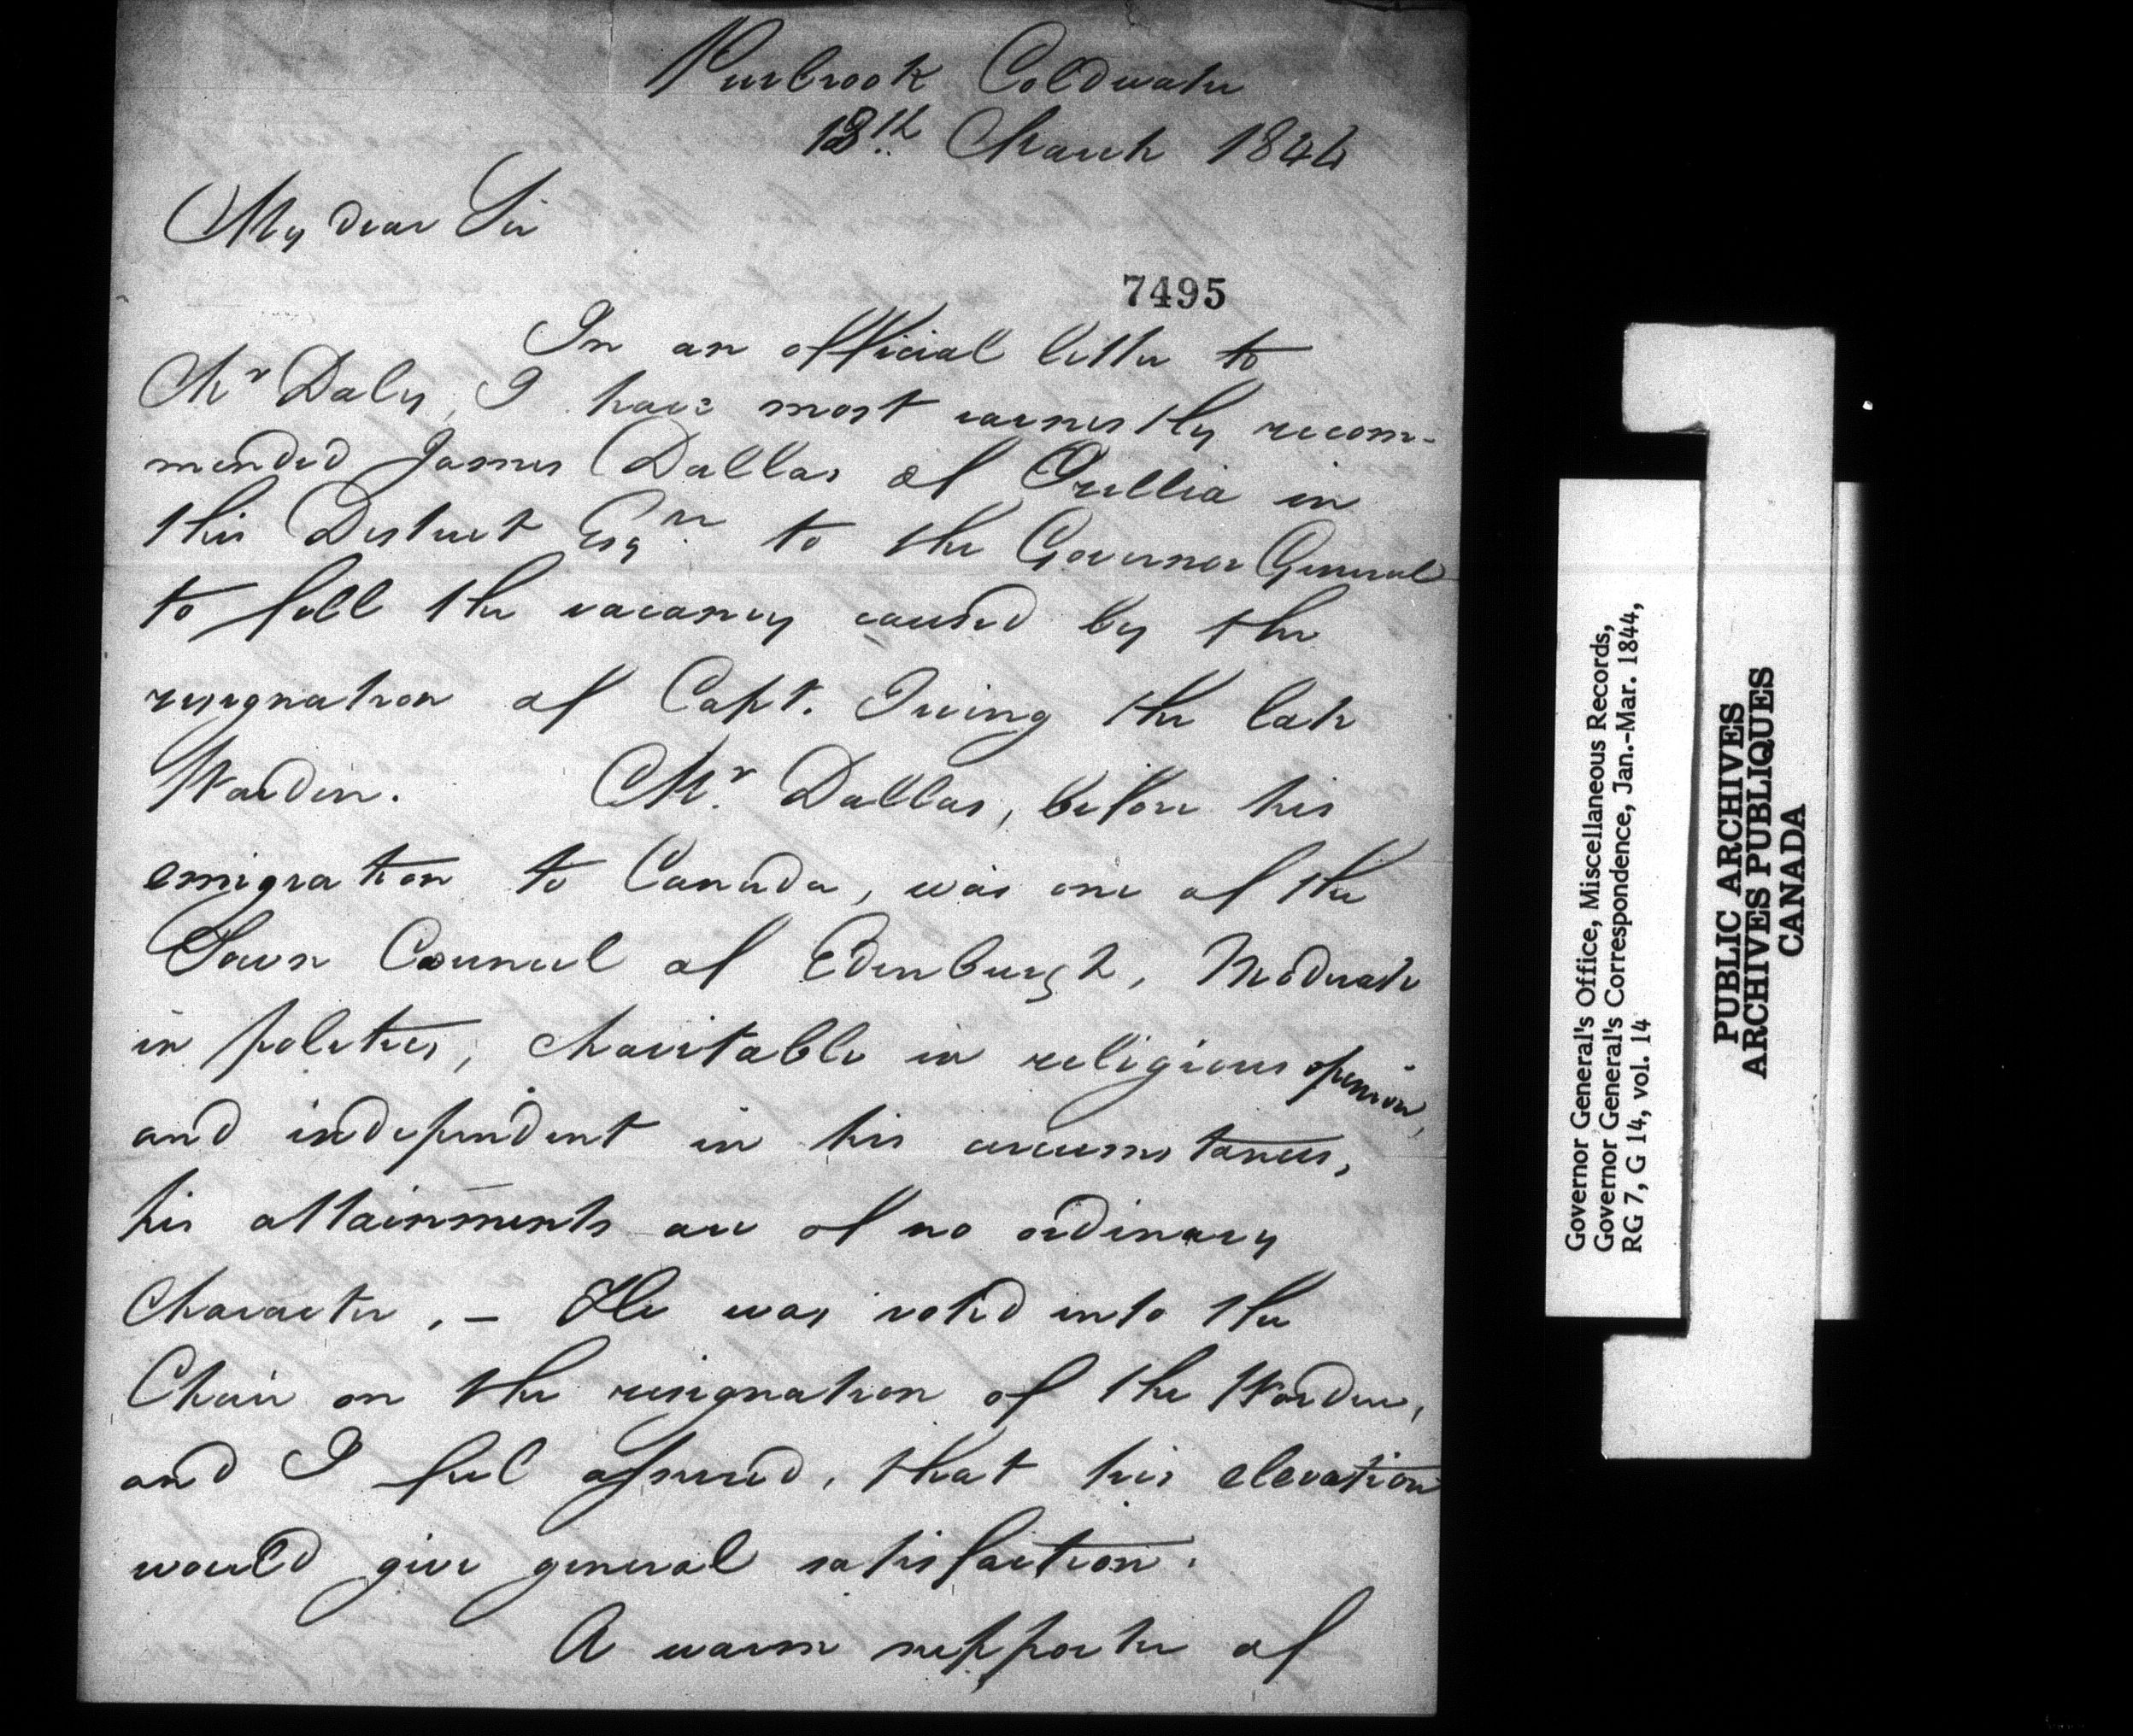 Purbrook Coldwater
18th March 1844
My dear Sir
7495
In an official letter to
Mr Daly, I have most earnestly recom-
mended James Dallas of Orillia in
this District Esqre to the Governor General
to fill the vacancy caused by the
resignation of Capt. Irving the late
Warden. Mr. Dallas, before his
emigration to Canada, was one of the
Town Council of Edinburgh, Moderate
in politics, charitable in religious opinion,
and independent in his circumstances,
his attainments are of no ordinary
Character. – He was voted into the
Chair on the resignation of the Warden,
and I feel assured, that his elevation
would give general satisfaction.
A warm supporter of
Governor General's Office, Miscellaneous Records,
Governor General's Correspondence, Jan.-Mar. 1844,
RG 7, G 14, vol. 14
PUBLIC ARCHIVES
ARCHIVES PUBLIQUES
CANADA